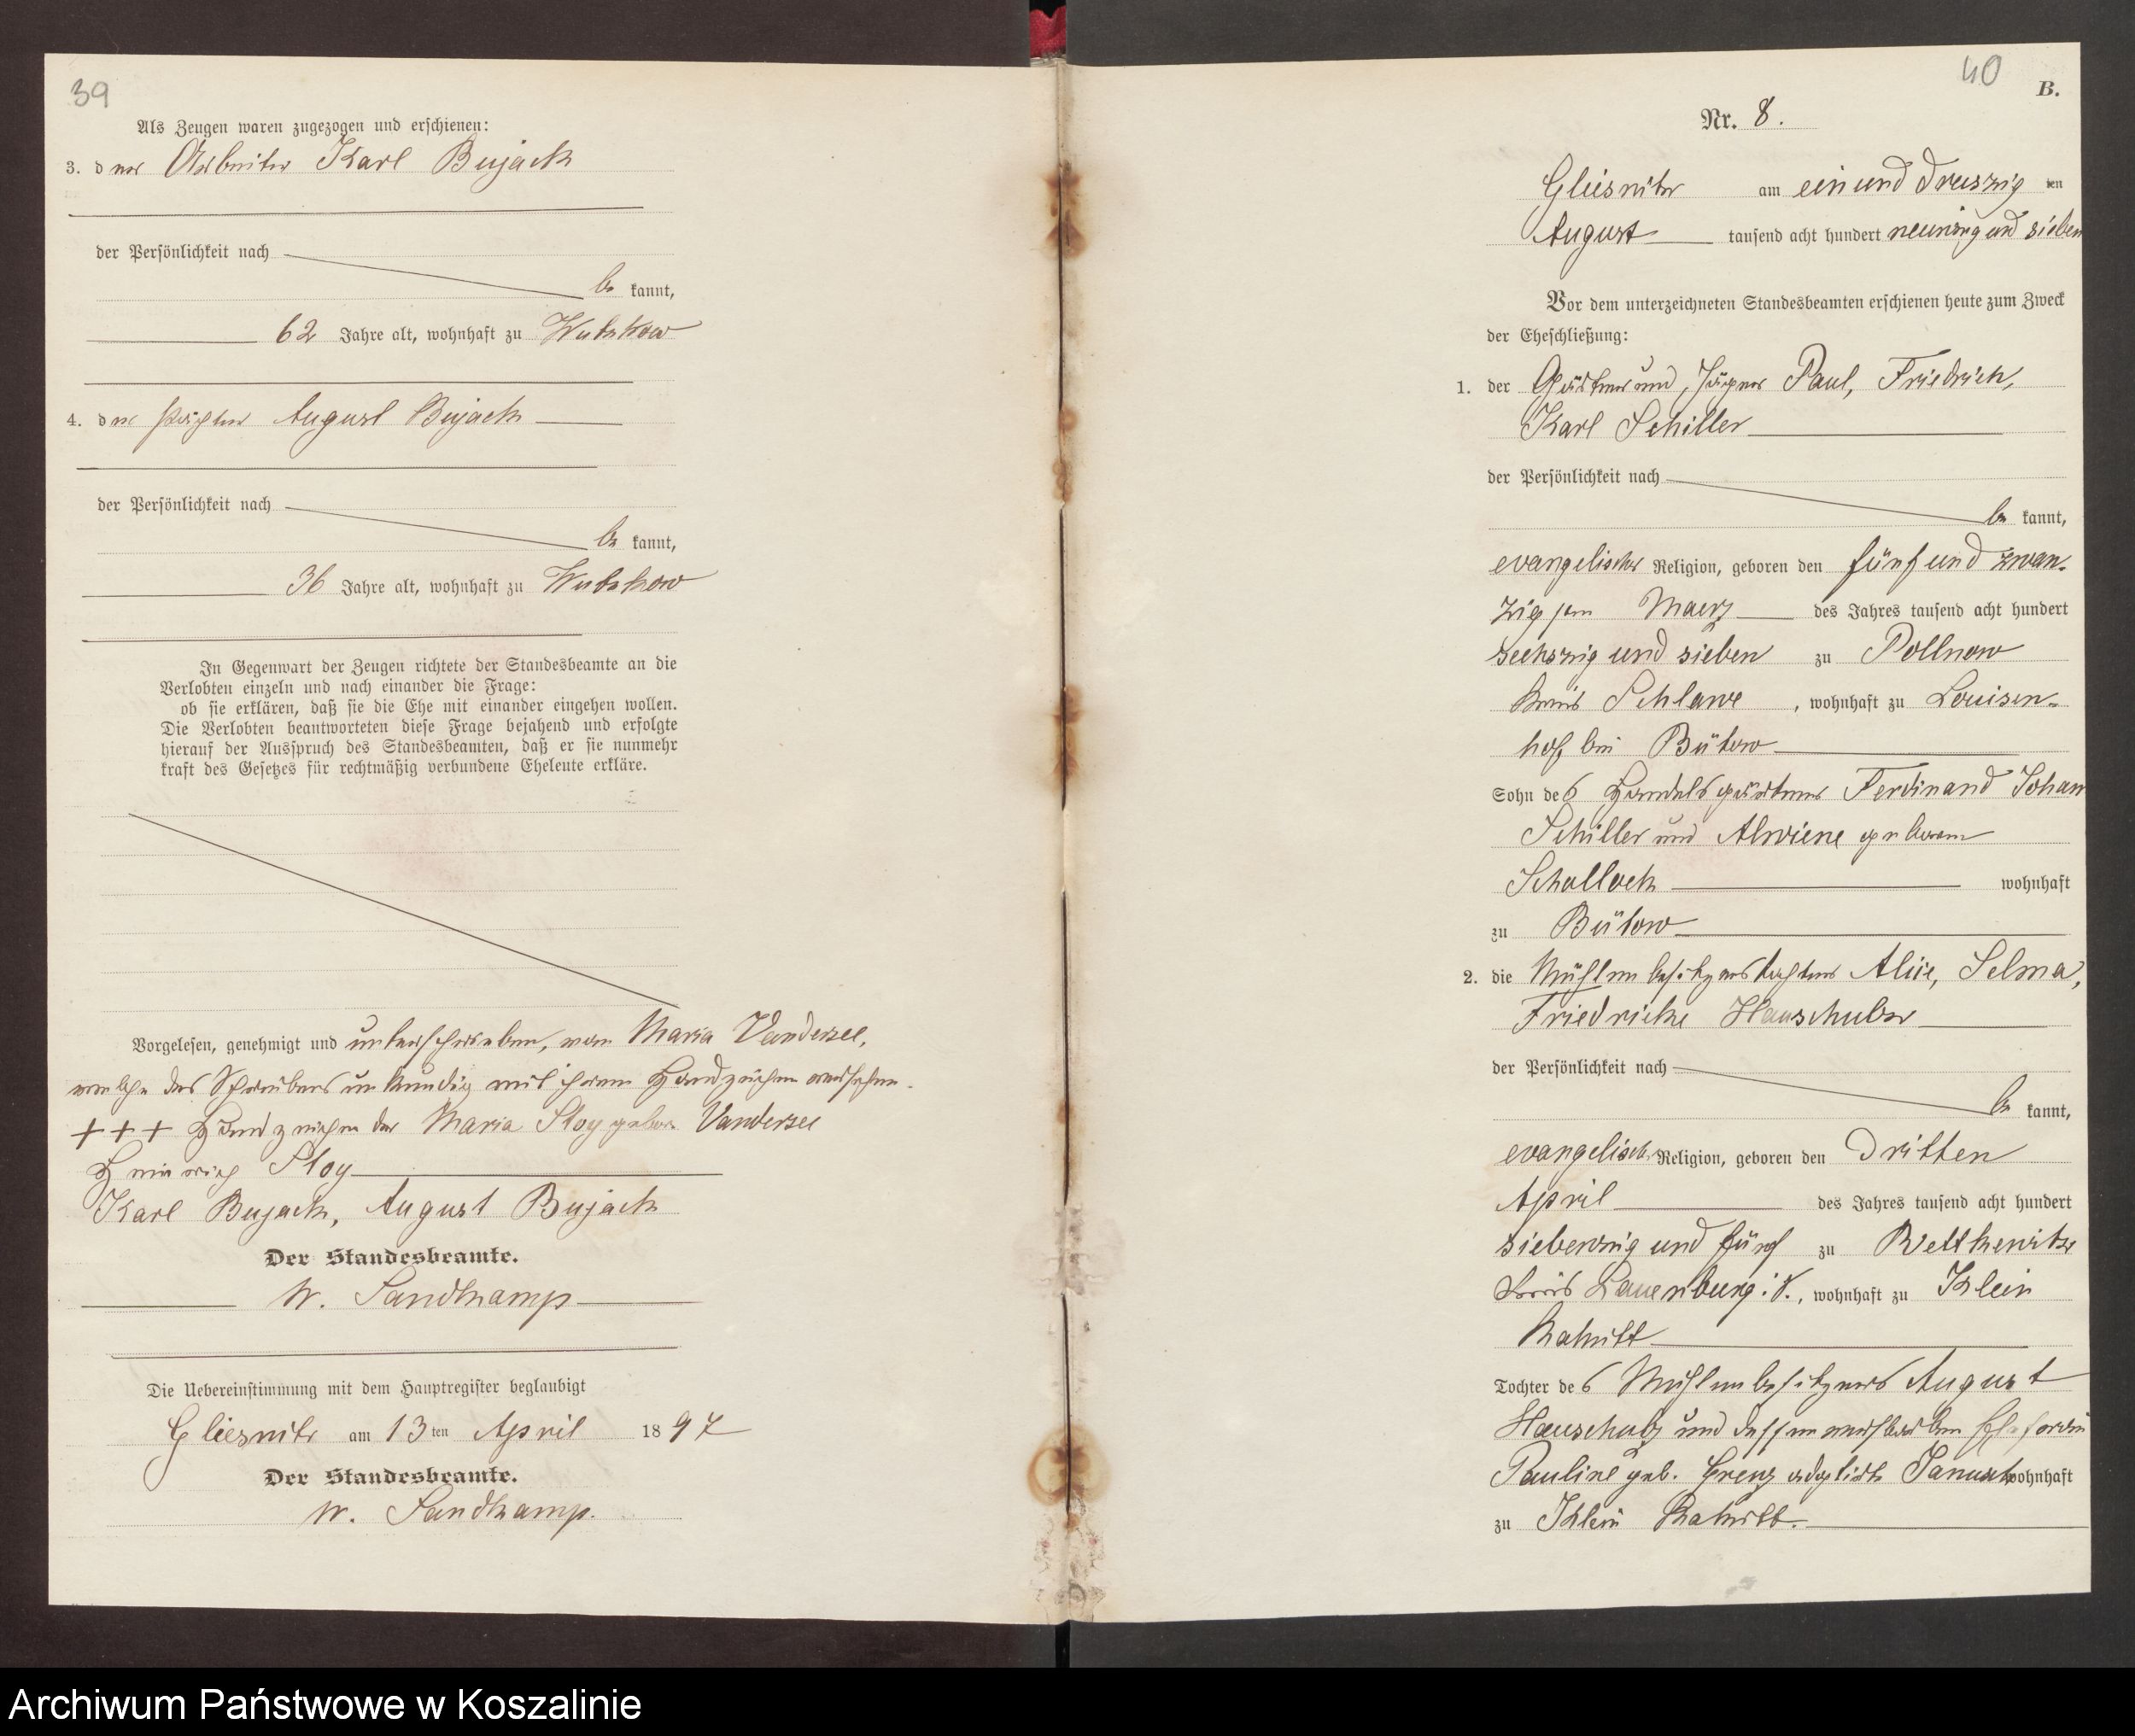 39
Als Zeugen waren zugezogen und erschienen:
3. der Arbeiter Karl Bujack
der Persönlichkeit nach
be kannt,
62 Jahre alt, wohnhaft zu Wutzkow
4. der Pächter August Bujack
der Persönlichkeit nach
be kannt,
36 Jahre alt, wohnhaft zu Wutzkow
In Gegenwart der Zeugen richtete der Standesbeamte an die
Verlobten einzeln und nach einander die Frage:
ob sie erklären, daß sie die Ehe mit einander eingehen wollen.
Die Verlobten beantworteten diese Frage bejahend und erfolgte
hierauf der Ausspruch des Standesbeamten, daß er sie nunmehr
kraft des Gesetzes für rechtmäßig verbundene Eheleute erkläre.
Vorgelesen, genehmigt und unterschrieben, von Maria Vandersee,
welche des Schreibens unkundig mit ihrem Handzeichen versehen.
+ + + Handzeichen der Maria Stoy gebor. Vandersee
Heinrich Stoy
Karl Bujack, August Bujack
Der Standesbeamte.
W. Sandkamp
Die Uebereinstimmung mit dem Hauptregister beglaubigt
Gliesnitz am 13 ten April 1897
Der Standesbeamte.
W. Sandkamp.
40
B.
Nr. 8.
Gliesnitz am ein und dreiszig ten
August tausend acht hundert neunzig und sieben
Vor dem unterzeichneten Standesbeamten erschienen heute zum Zweck
der Eheschließung:
1. der Gärtner und Jäger Paul, Friedrich,
Karl Schiller
der Persönlichkeit nach
be kannt,
evangelischer Religion, geboren den fünf und zwan-
zigsten Maerz des Jahres tausend acht hundert
sechszig und sieben zu Pollnow
Kreis Schlawe, wohnhaft zu Louisen-
hof bei Bütow
Sohn des Handelsgärtners Ferdinand Johan
Schiller und Alwiene geboren
Schallock wohnhaft
zu Bütow
2. die Mühlenbesitzerstochter Alice, Selma,
Friedricke Hauschulz
der Persönlichkeit nach
be kannt,
evangelisch Religion, geboren den dritten
April des Jahres tausend acht hundert
siebenzig und fünf zu Rettkewitz
Kreis Lauenburg i. P., wohnhaft zu Klein
Rakitt
Tochter des Mühlenbesitzers August
Hauschulz und dessen verstorbenen Ehefrau
Pauline geb. Grenz wohnhaft
zu Klein Rakitt.
Archiwum Państwowe w Koszalinie